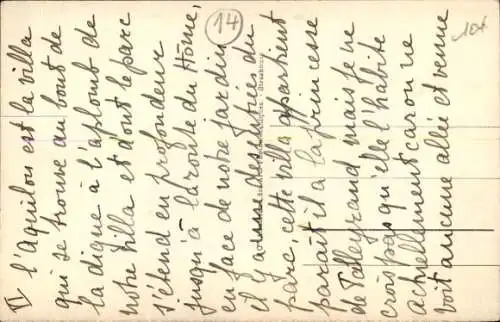 VI l'Aquilon est la villa
qui se trouve au bout de
la digue à l'aplomb de
notre villa et dont le parc
s'étend en profondeur
jusqu'à la route du Hôme,
en face de notre jardin
et y a des entrées du
parc, cette villa appartient
paraît-il à la princesse
de Talleyrand mais je ne
crois pas qu'elle l'habite
actuellement car on ne
voit aucune allée et venue
14